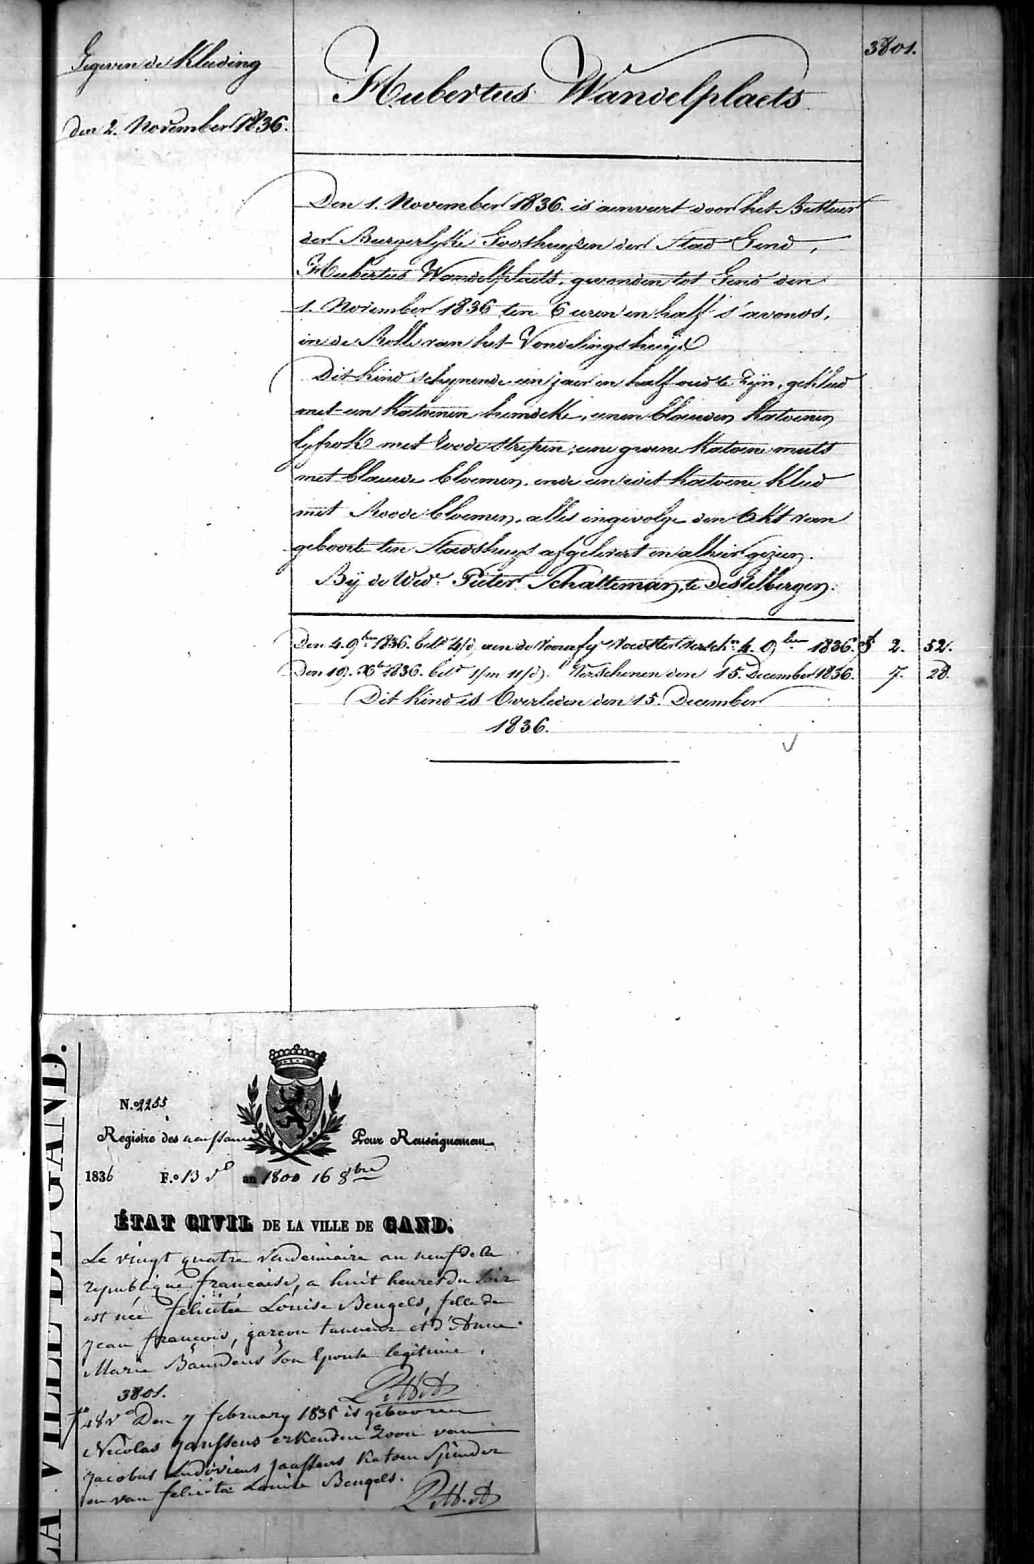 Gegeven de Kleeding
den 2. November 1836.
3801.
Hubertus Wandelplaets
Den 1. November 1836. is aenveert door het Bestuur
der Burgerlyke Godshuyzen der Stad Gend,
Hubertus Wandelplaets, gevonden tot Gend den
1. November 1836 ten 6 uren en half s'avonds,
in de Rolle van het Vondelingshuys
Dit kind schynende een jaer en half oud te zyn, gekleed
met een katoenen hemdeke, eenen blauwen katoenen
lyfrok met roode strepen, eene groene katoene muts
met blauwe bloemen, ende een wit katoene kleed
met Roode bloemen, alles ingevolge den Akt van
geboorte ten Stadshuys afgelevert en alhier gezien.
Bij de Wed. Pieter Schatteman, te Destelbergen.
Den 4. 9ber 1836. betd 4/d, aen de voorafge Voedster versch.n 4. 9ber 1836. f 2. 52.
Den 19. Xb 1836. betd 1/m 11/d. Verschenen den 15. December 1836. 7. 28.
Dit kind is Overleden den 15. December
1836.
LA VILLE DE GAND.
N.o 2255
Registre des naissances Pour Renseignement
1836 F.o 13 vo an 1800 16 8bre
ÉTAT CIVIL DE LA VILLE DE GAND.
Le vingt quatre Vendemiaire an neuf de la
republique française, a huit heures du soir
est née felicitée Louise Bengels, fille de
Jean françois, garçon tanneur et d'Anne
Marie Bauwens son Epouse legitime.
3801.
48 vo Den 7 february 1835 is gebooren
Nicolas Janssens erkenden Zoon van
Jacobus Ludovicus Janssens Katoen Spinder
en van felicita Louise Bengels.